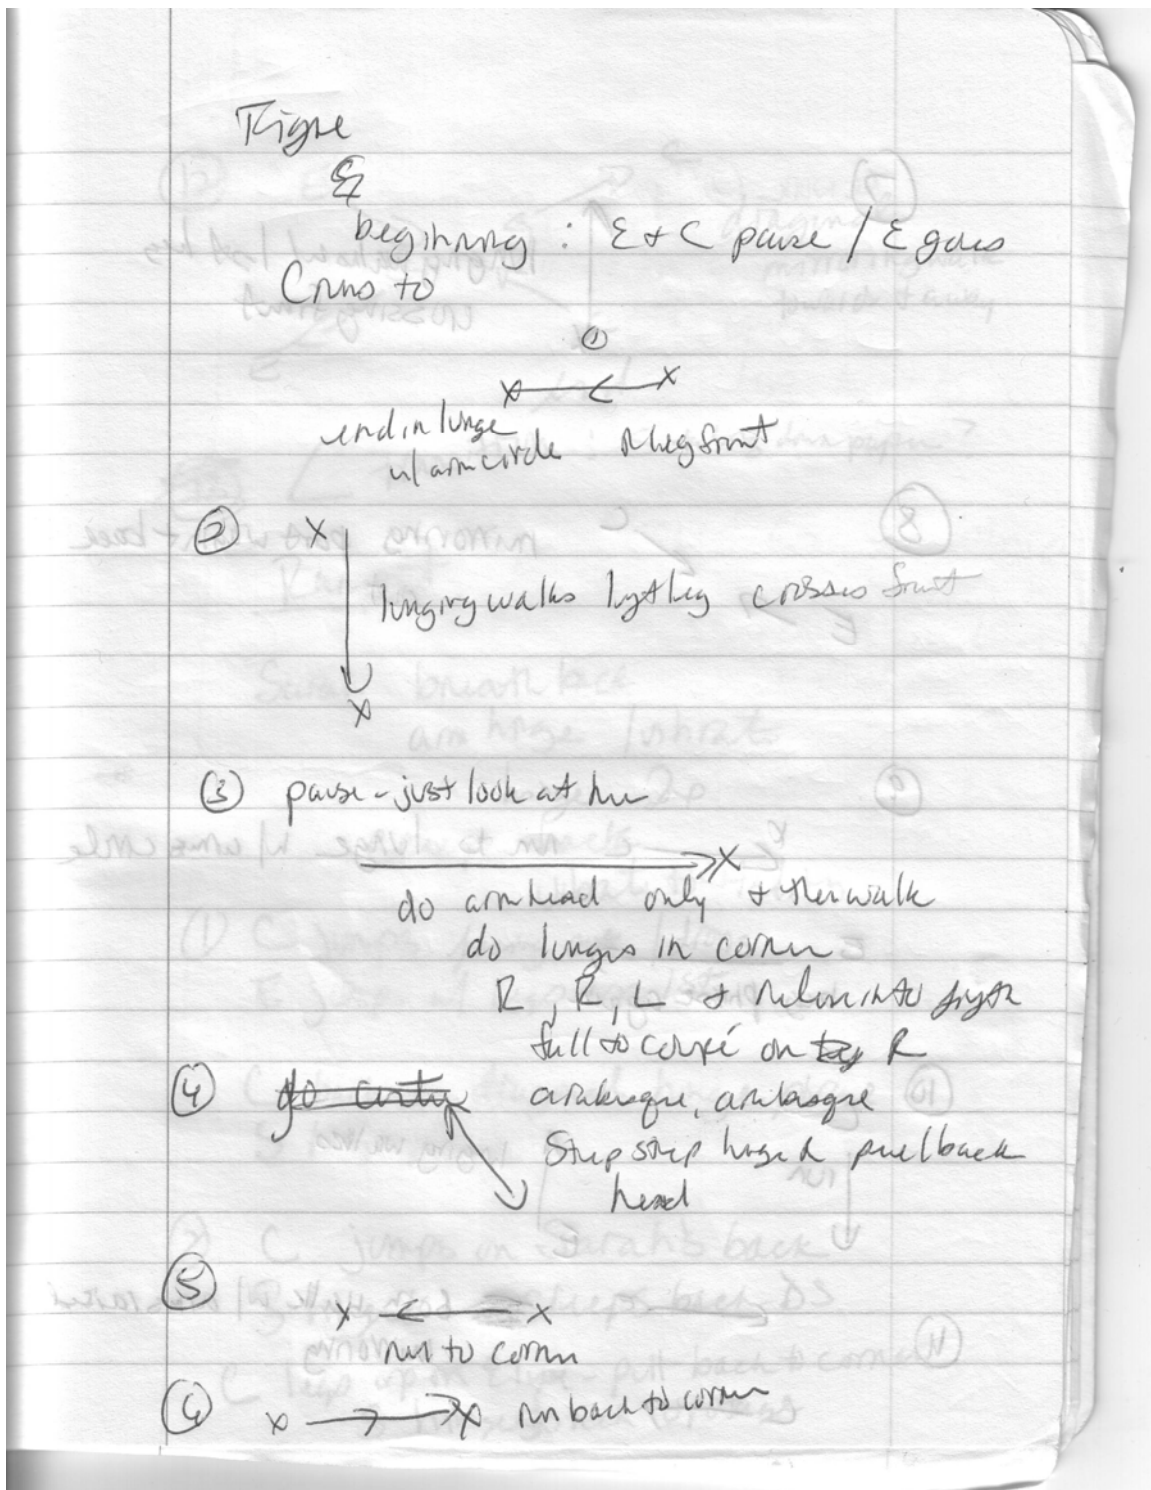 Tigre
&
beginning : E + C pause / E goes
C runs to
①
X X
end in lunge
w/ arm circle R leg front
② X
lunging walks left leg crosses front
X
③ pause - just look at her
X
do arm head only + then walk
do lunges in corner
R, R, L + release into
fall to coupé on R
④ arabesque, arabesque
Step step lunge R pull back
head
⑤
X X
run to corner
⑥ X X run back to corner